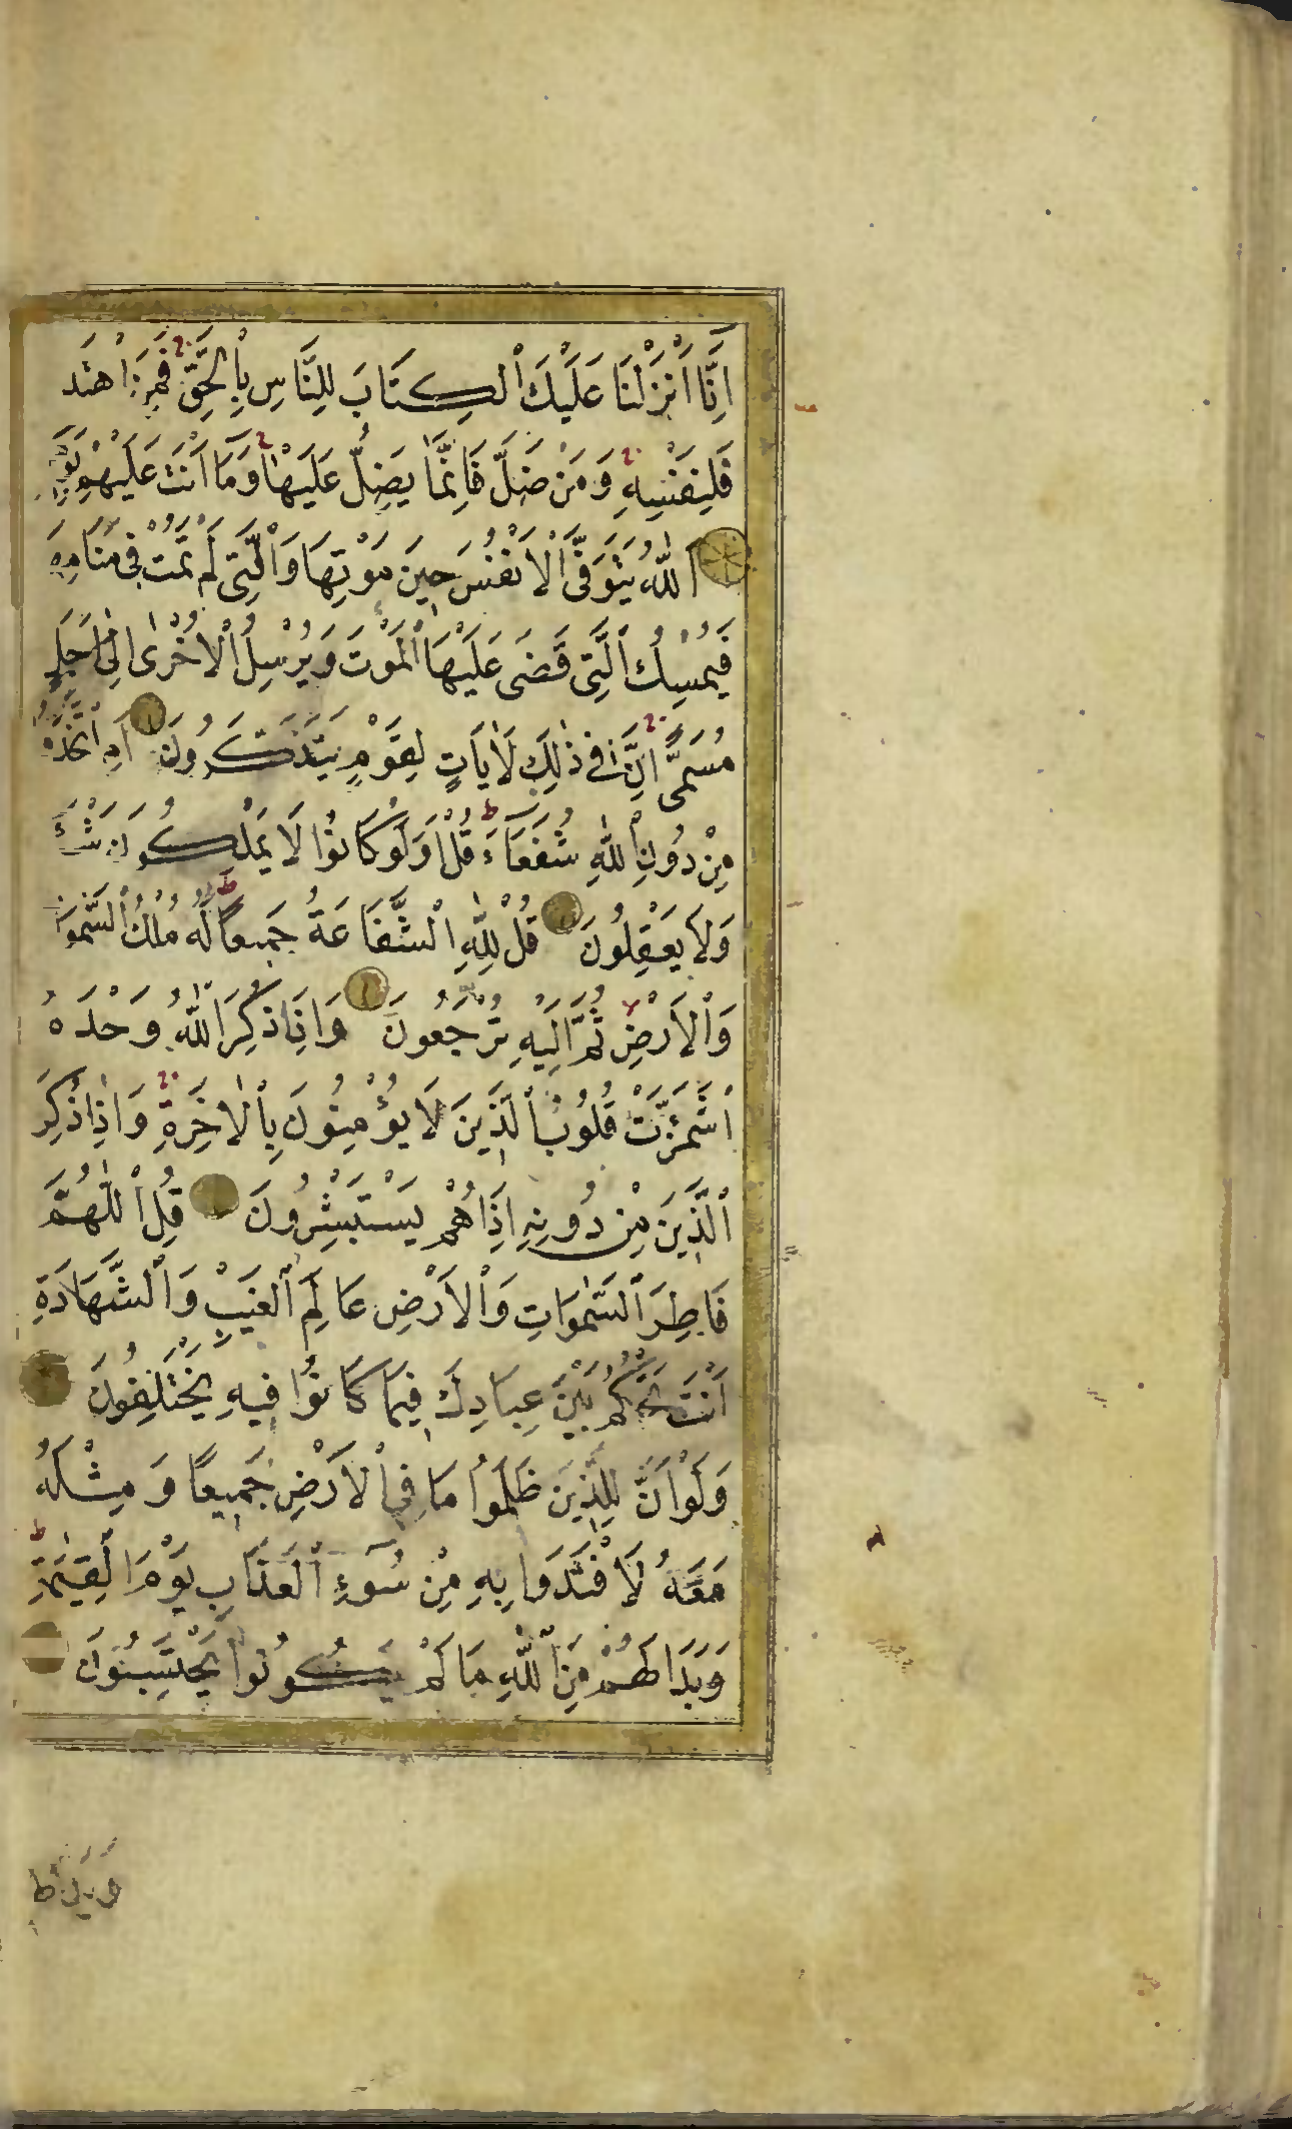 اِنَّا اَنْزَلْنَا عَلَيْكَ الْكِتَابَ لِلنَّاسِ بِالْحَقِّ فَمَنِ اهْتَدٰ
فَلِنَفْسِهِ وَمَنْ ضَلَّ فَاِنَّمَا يَضِلُّ عَلَيْهَا وَمَا اَنْتَ عَلَيْهِمْ
اَللّٰهُ يَتَوَفَّى الْاَنْفُسَ حِينَ مَوْتِهَا وَالَّتِى لَمْ تَمُتْ فِى مَنَامِهَا
فَيُمْسِكُ الَّتِى قَضَى عَلَيْهَا الْمَوْتَ وَيُرْسِلُ الْاُخْرٰى اِلٰى اَجَلٍ
مُسَمًّى اِنَّ فِى ذٰلِكَ لَاٰيَاتٍ لِقَوْمٍ يَتَذَكَّرُونَ اَمِ اتَّخَذُوا
مِنْ دُونِ اللّٰهِ شُفَعَآءَ قُلْ اَوَلَوْ كَانُوا لَا يَمْلِكُونَ شَيْئًا
وَلَا يَعْقِلُونَ قُلْ لِلّٰهِ الشَّفَاعَةُ جَمِيعًا لَهُ مُلْكُ السَّمٰوَاتِ
وَالْاَرْضِ ثُمَّ اِلَيْهِ تُرْجَعُونَ وَاِذَا ذُكِرَ اللّٰهُ وَحْدَهُ
اشْمَئَزَّتْ قُلُوبُ الَّذِينَ لَا يُؤْمِنُونَ بِالْاٰخِرَةِ وَاِذَا ذُكِرَ
الَّذِينَ مِنْ دُونِهِ اِذَا هُمْ يَسْتَبْشِرُونَ قُلِ اللّٰهُمَّ
فَاطِرَ السَّمٰوَاتِ وَالْاَرْضِ عَالِمَ الْغَيْبِ وَالشَّهَادَةِ
اَنْتَ تَحْكُمُ بَيْنَ عِبَادِكَ فِيمَا كَانُوا فِيهِ يَخْتَلِفُونَ
وَلَوْ اَنَّ لِلَّذِينَ ظَلَمُوا مَا فِى الْاَرْضِ جَمِيعًا وَمِثْلَهُ
مَعَهُ لَافْتَدَوْا بِهِ مِنْ سُوٓءِ الْعَذَابِ يَوْمَ الْقِيٰمَةِ
وَبَدَا لَهُمْ مِنَ اللّٰهِ مَا لَمْ يَكُونُوا يَحْتَسِبُونَ
وَبَدَا لَهُ